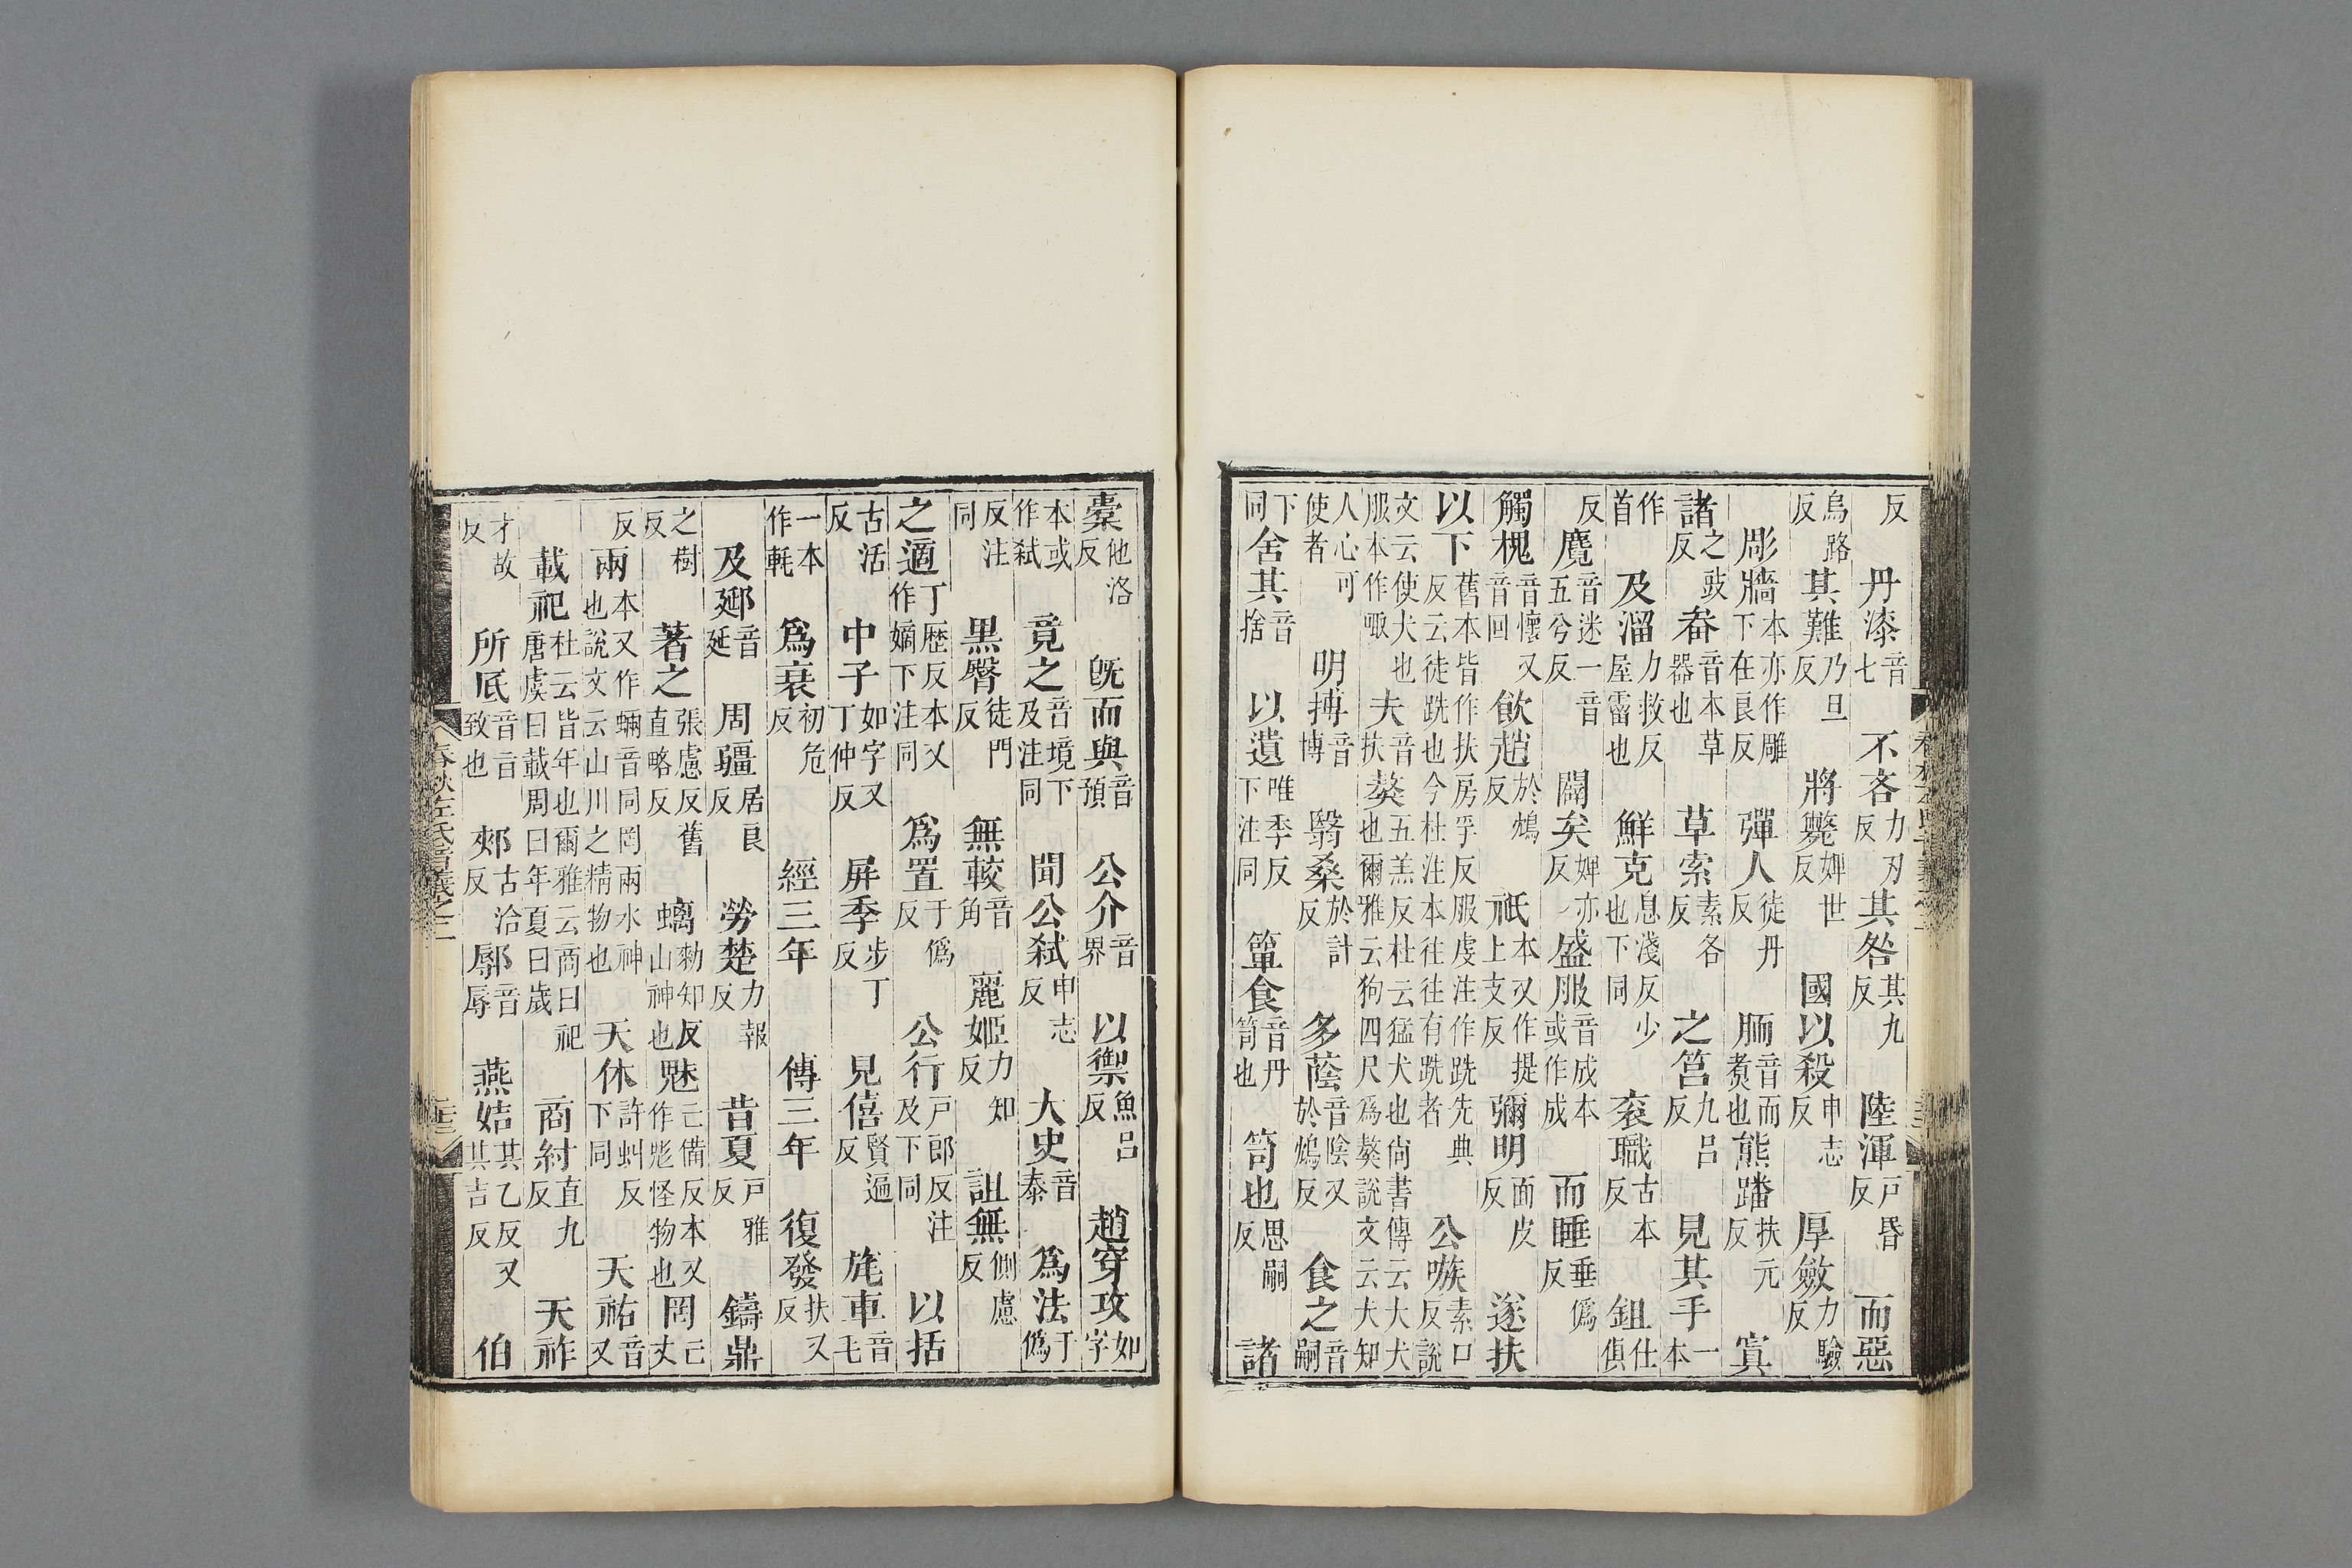 反丹漆音七不吝力刃反其咎其九反陸渾戶昏反而惡
烏路反其難乃旦反將斃婢世反國以殺申志反厚斂力驗反
彫牆本亦作雕下在良反彈人徒丹反胹音而煑也熊蹯扶元反寘
諸之豉反畚音本草器也草索素各反之筥九呂反見其手一本
作首及溜力救反屋霤也鮮克息淺反少也下同衮職古本反鉏仕俱
反麑音迷一音五兮反闢矣婢亦反盛服音成本或作成而睡垂僞反
觸槐音懷又音回飲趙於鴆反祇本又作提上支反彌明面皮反遂扶
以下舊本皆作扶房孚反服虔注作跣先典反云徒跣也今杜注本往往有跣者公嗾素口反說
文云使犬也服本作㖩夫音扶獒五羔反杜云猛犬也尙書傳云大犬也爾雅云狗四尺爲獒說文云犬知
人心可使者明搏音博翳桑於計反多蔭音陰又於鴆反食之音嗣
下同舍其音捨以遺唯季反下注同簞食音丹笥也笥也思嗣反諸
橐他洛反旣而與音預公介音界以禦魚呂反趙穿攻如字
本或作弑竟之音境下及注同聞公弑申志反大史音泰爲法于僞
反注同黑臀徒門反無較音角麗姬力知反詛無側慮反
之適丁歷反本又作嫡下注同爲置于僞反公行戶郎反注及下同以括
古活反中子如字又丁仲反屏季步丁反見僖賢遍反旄車音毛
一本作軞爲衰初危反經三年傳三年復發扶又反
及郔音延周疆居良反勞楚力報反昔夏戶雅反鑄鼎
之樹反著之張慮反舊直略反螭勑知反山神也魅亡備反本又作鬽怪物也罔亡丈
反兩本又作蜽音同罔兩水神也說文云山川之精物也天休許虯反下同天祐音又
載祀杜云皆年也爾雅云商曰祀唐虞曰載周曰年夏曰歲商紂直九反天祚
才故反所厎音旨致也郟古洽反鄏音辱燕姞其乙反又其吉反伯
春秋左氏音義之三